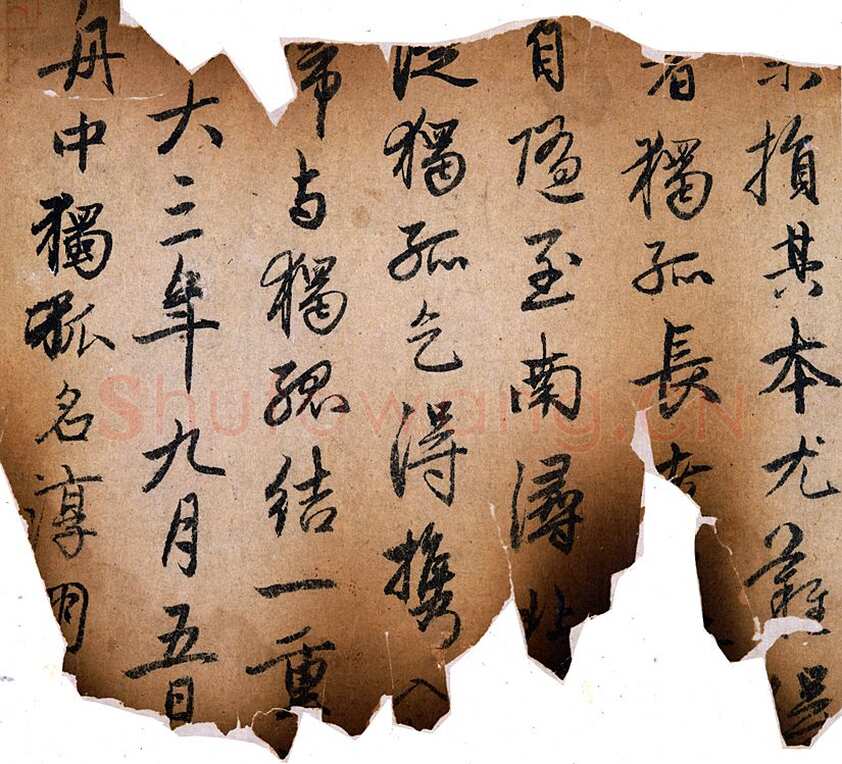 未損其本尤難得
者獨孤長
自隨至南潯北
從獨孤乞得攜入
帰与獨孤結一重
大三年九月五日
舟中獨孤名淳朋
Shufawang.CN